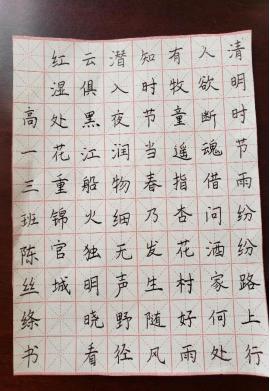 清明时节雨纷纷路上行
人欲断魂借问酒家何处
有牧童遥指杏花村好雨
知时节当春乃发生随风
潜入夜润物细无声野径
云俱黑江船火独明晓看
红湿处花重锦官城
高一三班陈丝绦书